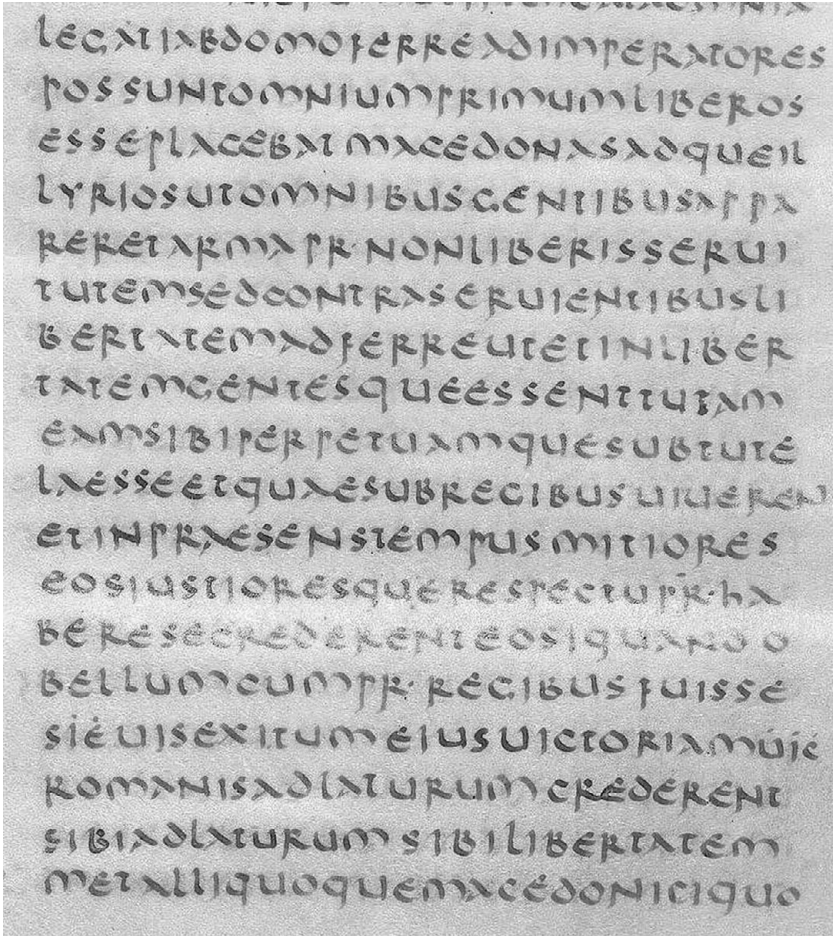 LEGATIABDOMOFERREADIMPERATORES
POSSUNTOMNIUMPRIMUMLIBEROS
ESSEPLACEBATMACEDONASADQUEIL
LYRIOSUTOMNIBUSGENTIBUSAPPA
RERETARMAPR·NONLIBERISSERUI
TUTEMSEDCONTRASERUIENTIBUSLI
BERTATEMADFERREUTETINLIBER
TATEMGENTESQUEESSENTTUTAM
EAMSIBIPERPETUAMQUESUBTUTE
LAESSEETQUAESUBREGIBUSUIUEREN
ETINPRAESENSTEMPUSMITIORES
EOSIUSTIORESQUERESPECTUPR·HA
BERESECREDERENTEOSIQUANDO
BELLUMCUMPR·REGIBUSFUISSE
SIEUISEXITUMEIUSUICTORIAMUIE
ROMANISADLATURUMCREDERENT
SIBIADLATURUMSIBILIBERTATEM
METALLIQUOQUEMACEDONICIQUO